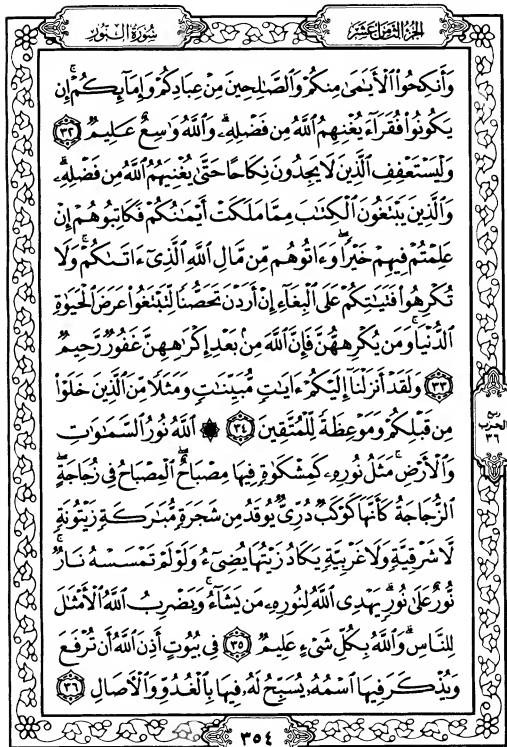 الجزء الثامن عشر
سُورَةُ النُّورِ
وَأَنكِحُوا۟ ٱلْأَيَـٰمَىٰ مِنكُمْ وَٱلصَّـٰلِحِينَ مِنْ عِبَادِكُمْ وَإِمَآئِكُمْ ۚ إِن
يَكُونُوا۟ فُقَرَآءَ يُغْنِهِمُ ٱللَّهُ مِن فَضْلِهِۦ ۗ وَٱللَّهُ وَٰسِعٌ عَلِيمٌ ٣٢
وَلْيَسْتَعْفِفِ ٱلَّذِينَ لَا يَجِدُونَ نِكَاحًا حَتَّىٰ يُغْنِيَهُمُ ٱللَّهُ مِن فَضْلِهِۦ ۗ
وَٱلَّذِينَ يَبْتَغُونَ ٱلْكِتَـٰبَ مِمَّا مَلَكَتْ أَيْمَـٰنُكُمْ فَكَاتِبُوهُمْ إِنْ
عَلِمْتُمْ فِيهِمْ خَيْرًا ۖ وَءَاتُوهُم مِّن مَّالِ ٱللَّهِ ٱلَّذِىٓ ءَاتَىٰكُمْ ۚ وَلَا
تُكْرِهُوا۟ فَتَيَـٰتِكُمْ عَلَى ٱلْبِغَآءِ إِنْ أَرَدْنَ تَحَصُّنًا لِّتَبْتَغُوا۟ عَرَضَ ٱلْحَيَوٰةِ
ٱلدُّنْيَا ۚ وَمَن يُكْرِههُّنَّ فَإِنَّ ٱللَّهَ مِنۢ بَعْدِ إِكْرَٰهِهِنَّ غَفُورٌ رَّحِيمٌ
٣٣ وَلَقَدْ أَنزَلْنَآ إِلَيْكُمْ ءَايَـٰتٍ مُّبَيِّنَـٰتٍ وَمَثَلًا مِّنَ ٱلَّذِينَ خَلَوْا۟
مِن قَبْلِكُمْ وَمَوْعِظَةً لِّلْمُتَّقِينَ ٣٤ ۞ ٱللَّهُ نُورُ ٱلسَّمَـٰوَٰتِ
وَٱلْأَرْضِ ۚ مَثَلُ نُورِهِۦ كَمِشْكَوٰةٍ فِيهَا مِصْبَاحٌ ۖ ٱلْمِصْبَاحُ فِى زُجَاجَةٍ ۖ
ٱلزُّجَاجَةُ كَأَنَّهَا كَوْكَبٌ دُرِّىٌّ يُوقَدُ مِن شَجَرَةٍ مُّبَـٰرَكَةٍ زَيْتُونَةٍ
لَّا شَرْقِيَّةٍ وَلَا غَرْبِيَّةٍ يَكَادُ زَيْتُهَا يُضِىٓءُ وَلَوْ لَمْ تَمْسَسْهُ نَارٌ ۚ
نُّورٌ عَلَىٰ نُورٍ ۗ يَهْدِى ٱللَّهُ لِنُورِهِۦ مَن يَشَآءُ ۚ وَيَضْرِبُ ٱللَّهُ ٱلْأَمْثَـٰلَ
لِلنَّاسِ ۗ وَٱللَّهُ بِكُلِّ شَىْءٍ عَلِيمٌ ٣٥ فِى بُيُوتٍ أَذِنَ ٱللَّهُ أَن تُرْفَعَ
وَيُذْكَرَ فِيهَا ٱسْمُهُۥ يُسَبِّحُ لَهُۥ فِيهَا بِٱلْغُدُوِّ وَٱلْـَٔاصَالِ ٣٦
ربع
الحزب
٣٦
٣٥٤